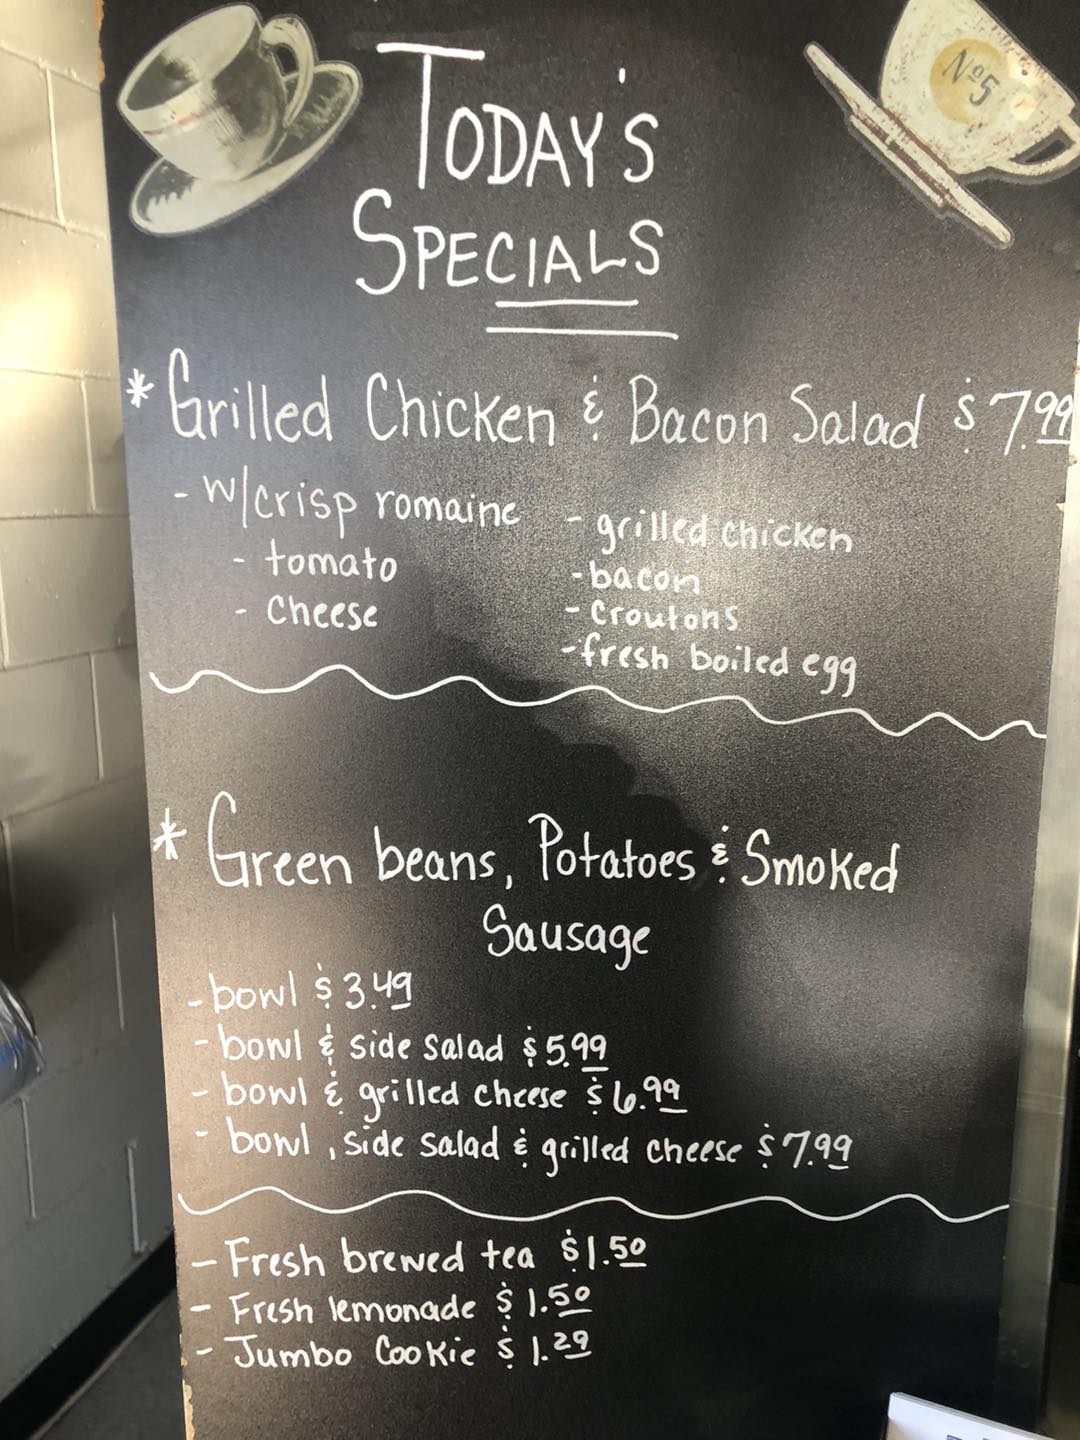 Nº5
TODAY'S
SPECIALS
* Grilled Chicken & Bacon Salad $7.99
- w/crisp romaine
- tomato
- cheese
- grilled chicken
- bacon
- croutons
- fresh boiled egg
* Green beans, Potatoes & Smoked
Sausage
- bowl $3.49
- bowl & side salad $5.99
- bowl & grilled cheese $6.99
- bowl, side salad & grilled cheese $7.99
- Fresh brewed tea $1.50
- Fresh lemonade $1.50
- Jumbo Cookie $1.29